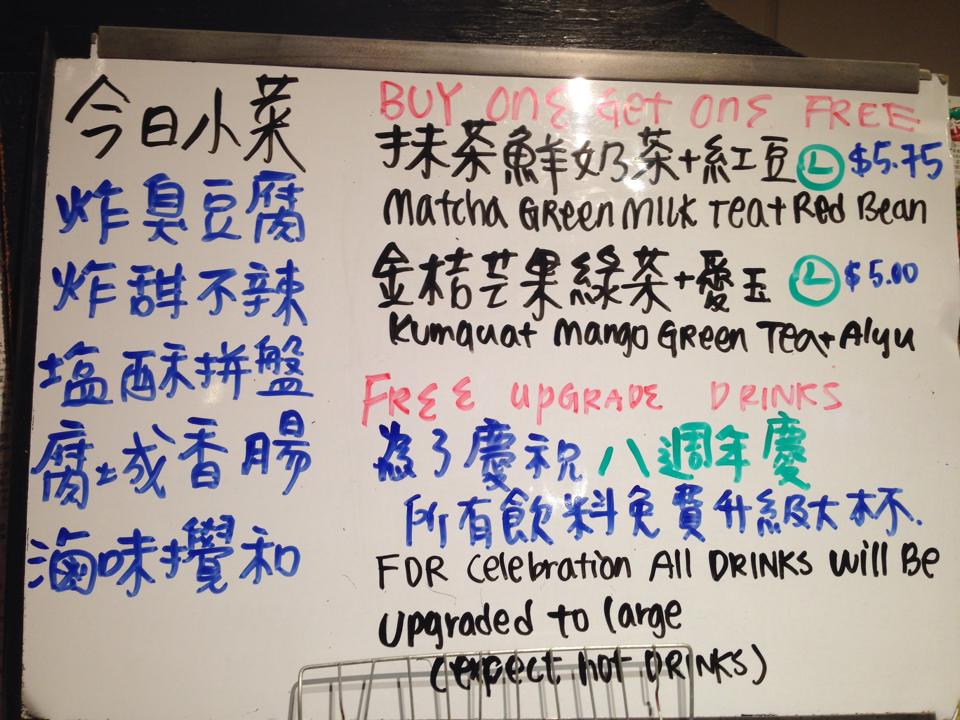 今日小菜
炸臭豆腐
炸甜不辣
塩酥拼盤
腐城香腸
滷味攪和
BUY One Get One FREE
抹茶鮮奶茶+紅豆 Ⓛ $5.75
Matcha Green Milk Tea+Red Bean
金桔芒果綠茶+愛玉 Ⓛ $5.00
Kumquat Mango Green Tea+Aiyu
FREE UPGRADE DRINKS
為了慶祝八週年慶
所有飲料免費升級大杯.
FOR Celebration All DRINKS will Be
upgraded to large
(expect hot DRINKS)